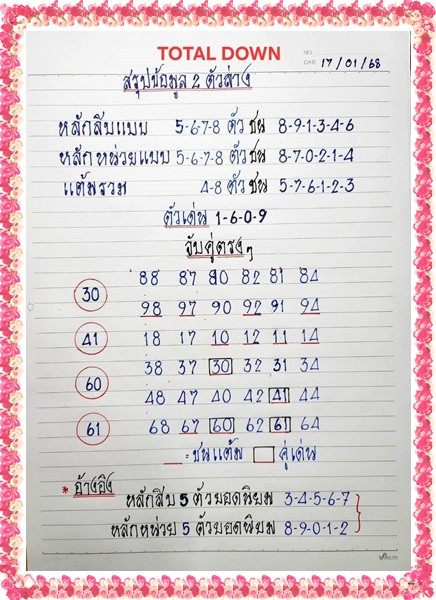 TOTAL DOWN
NO.
DATE 17/01/68
สรุปข้อมูล 2 ตัวล่าง
หลักสิบแบบ 5-6-7-8 ตัว ชน 8-9-1-3-4-6
หลักหน่วยแบบ 5-6-7-8 ตัว ชน 8-7-0-2-1-4
แต้มรวม 4-8 ตัว ชน 5-7-6-1-2-3
ตัวเด่น 1-6-0-9
จับคู่ตรง ๆ
88 87 80 82 81 84
30
98 97 90 92 91 94
41
18 17 10 12 11 14
38 37 30 32 31 34
60
48 47 40 42 41 44
61
68 67 60 62 61 64
= ชนแต้ม คู่เด่น
* อ้างอิง หลักสิบ 5 ตัวยอดนิยม 3-4-5-6-7
หลักหน่วย 5 ตัวยอดนิยม 8-9-0-1-2